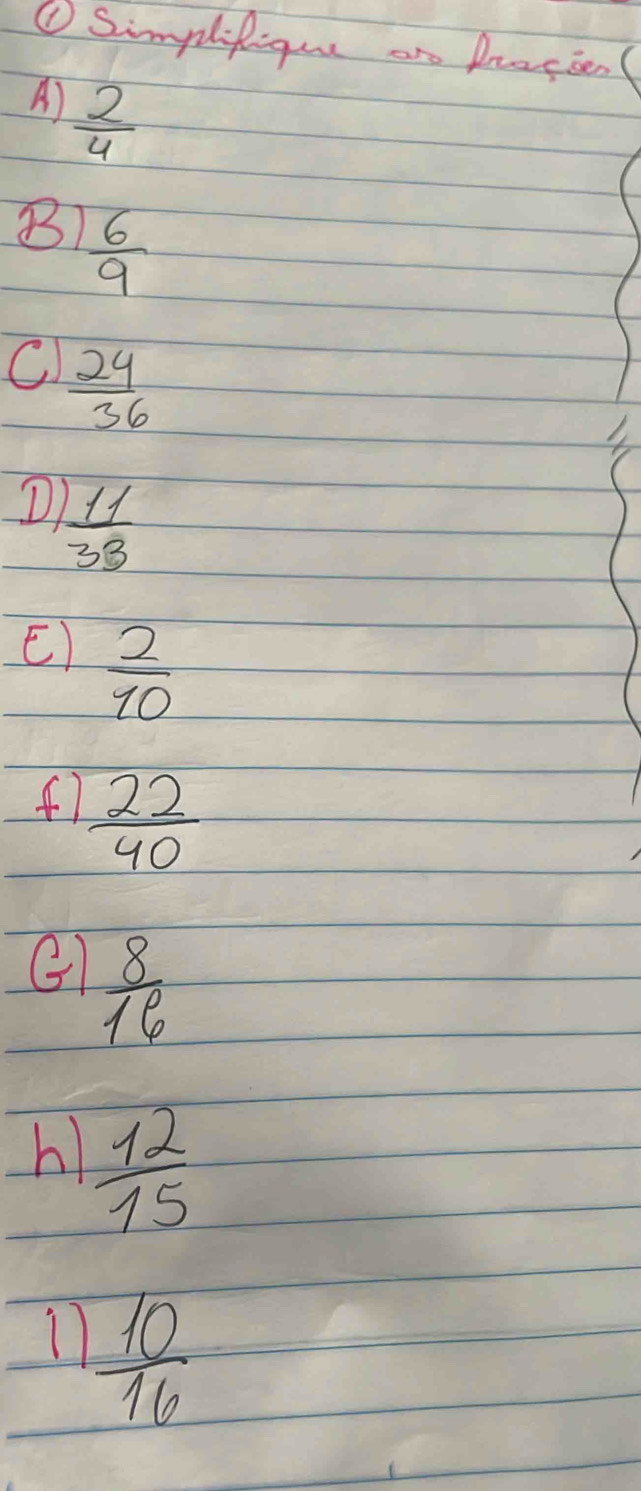 ① Simplifique as frações
A) 2/4
B) 6/9
C) 24/36
D) 11/33
E) 2/10
f) 22/40
G) 8/16
h) 12/15
i) 10/16